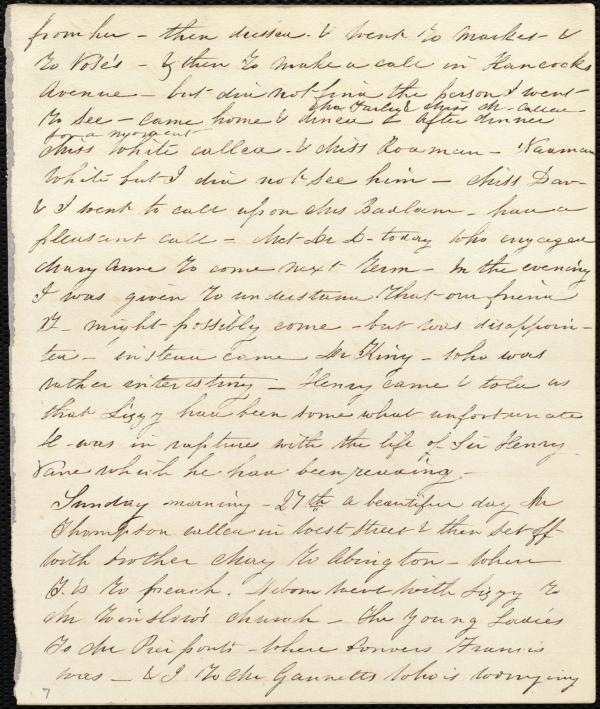 from her - then dressed & went to Market - &
to Vose's - & then to make a call in Hancock
Avenue - but did not find the person I went
to see - came home & dined & after dinner
Mrs Farley & Miss M - called
for a moment
Miss White called - & Miss Rodman - Naaman
White but I did not see him - Miss Dav-
& I went to call upon Mrs Badlam - had a
pleasant call - Met Dr D - today who engaged
Mary Anne to come next term - In the evening
I was given to understand that our friend
might possibly come - but was disappoin-
ted - instead came Mr King - who was
rather interesting - Henry came & told us
that Lizzy had been somewhat unfortunate
He was in rapture with the life of Sir Henry
Vane which he had been reading. -
Sunday morning - 27th a beautiful day Mr
Thompson called in West Street & then set off
with brother May to Abington - where
T. is to preach. went with Lizzy to
Mr Winslow's church - The Young Ladies
To Mr Pierponts - where Convers Francis
was - & I to Mr Gannetts who is worrying
7